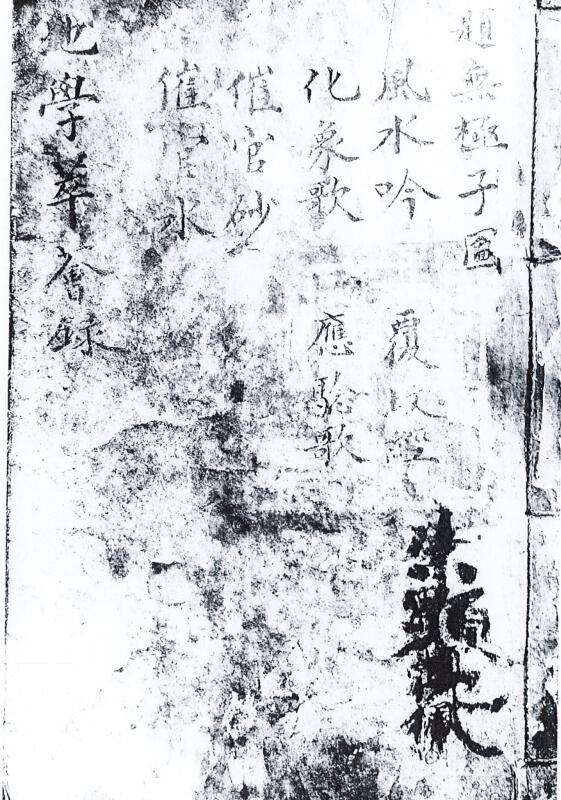 題無極子圖
風水吟
覆
化象歌
應驗歌
催官砂
催官水
地學萃會錄